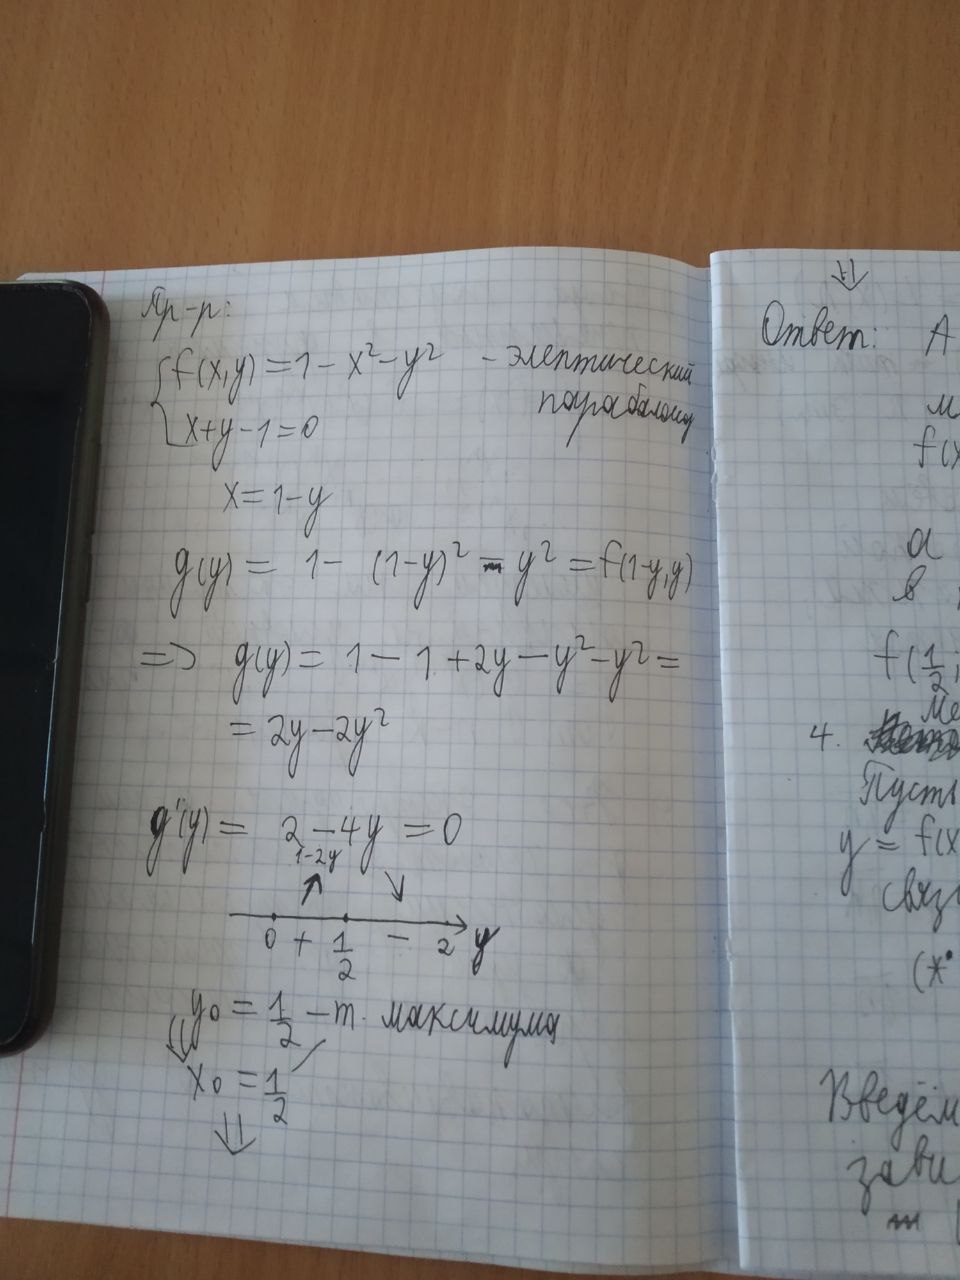 Пр-р:
f(x,y) = 1 - x² - y² - элептический
параболоид
x+y-1=0
x = 1-y
g(y) = 1 - (1-y)² - y² = f(1-y,y)
=> g(y) = 1 - 1 + 2y - y² - y² =
= 2y - 2y²
g'(y) = 2 - 4y = 0
1-2y
0 + 1/2 - 2 y
y₀ = 1/2 - т. максимума
x₀ = 1/2
Ответ: А
м
f(x
а
в
f(1/2;
4.
Пусть
y = f(x
связ
(x°
Введём
зави